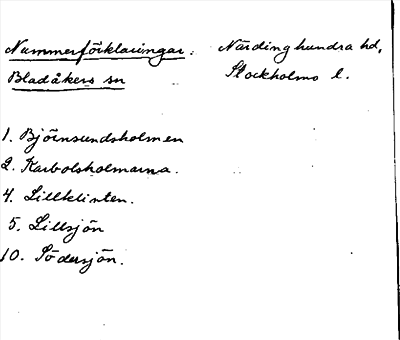 Nummerförklaringar: Närdinghundra hd,
Bladåkers sn Stockholms l.
1. Björnsundsholmen
2. Karbolsholmarna.
4. Lillklinten.
5. Lillsjön
10. Södersjön.